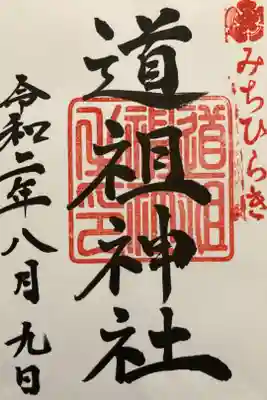 みちひらき
道祖神社
令和二年八月九日